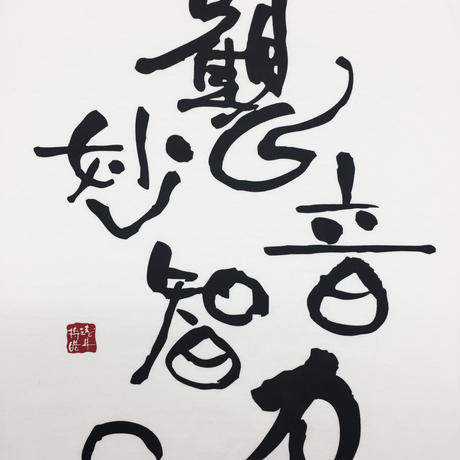 觀音
妙智力